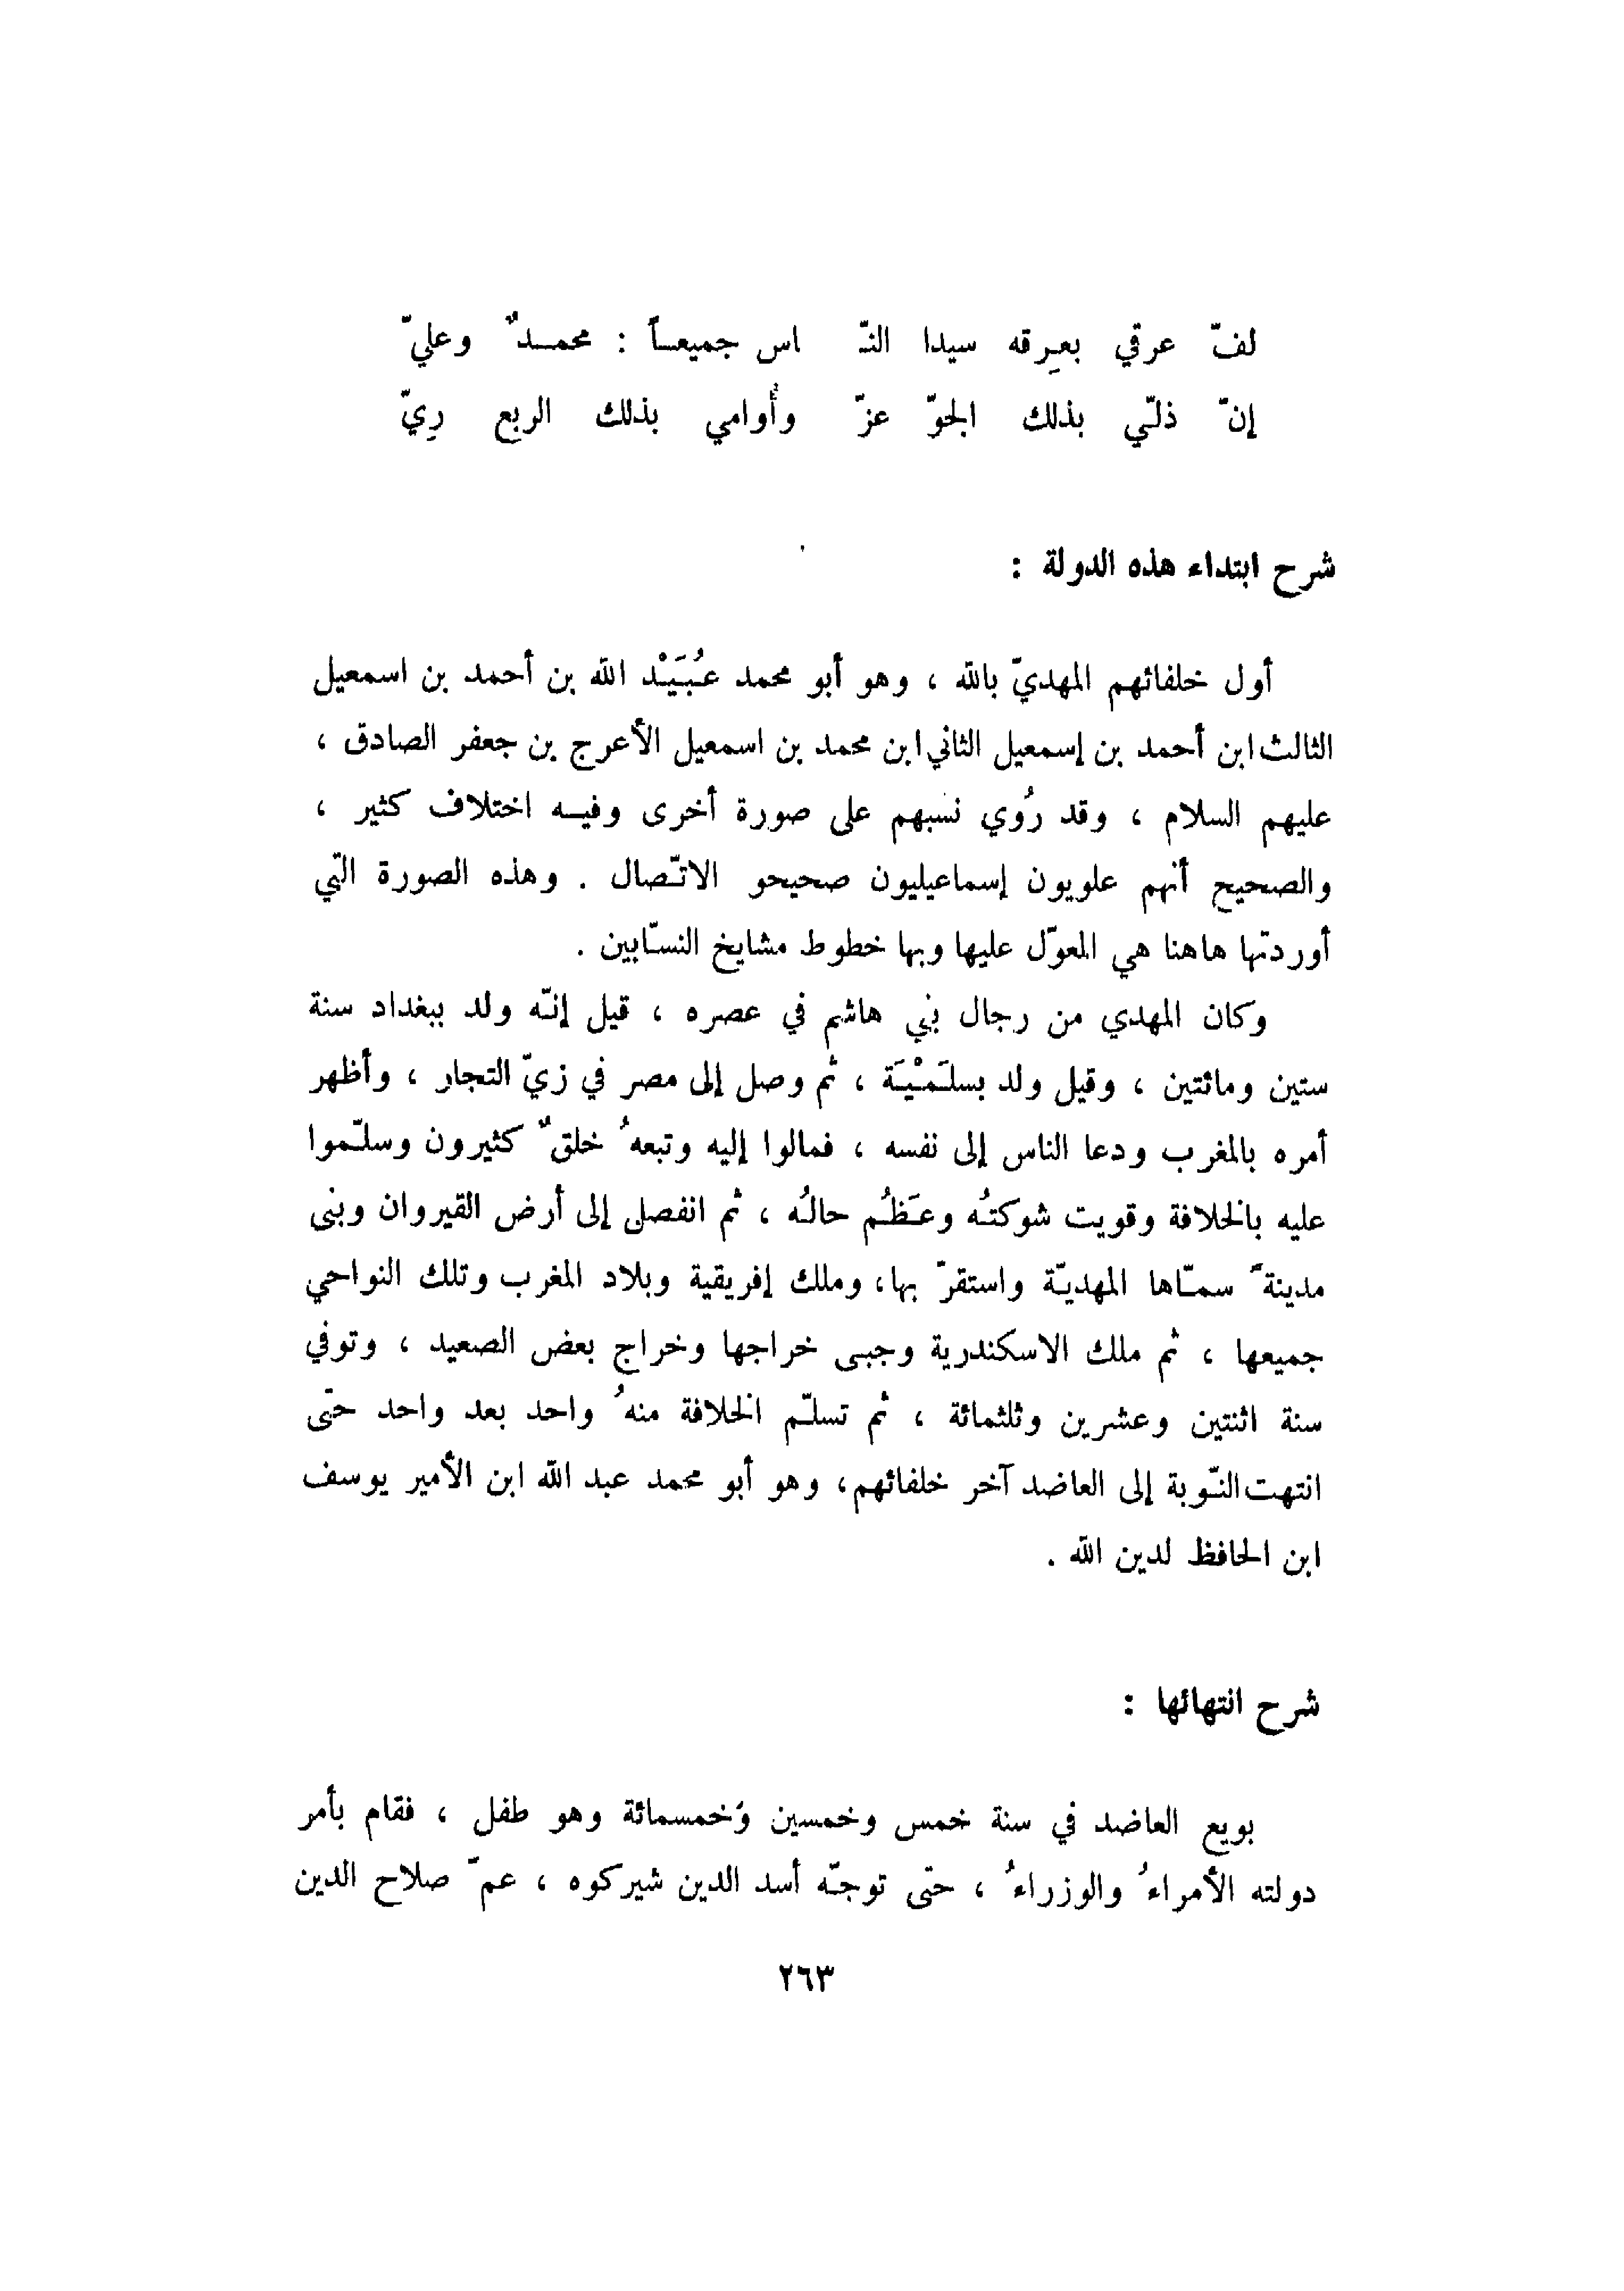 لفّ عرقي بعِرقه سيدا النّـ اس جميعــاً : محمــدٌ وعليّ
إنّ ذلّي بذلك الجوّ عزّ وأُوامي بذلك الربع رِيّ
شرح ابتداء هذه الدولة :
أول خلفائهم المهديّ بالله ، وهو أبو محمد عُبَيْد الله بن أحمد بن اسمعيل
الثالث ابن أحمد بن إسمعيل الثاني ابن محمد بن اسمعيل الأعرج بن جعفر الصادق ،
عليهم السلام ، وقد رُوي نسبهم على صورة أخرى وفيــه اختلاف كثير ،
والصحيح أنهم علويون إسماعيليون صحيحو الاتّصال . وهذه الصورة الّتي
أوردتها هاهنا هي المعوّل عليها وبها خطوط مشايخ النسّابين .
وكان المهدي من رجال بني هاشم في عصره ، قيل إنّه ولد ببغداد سنة
ستين ومائتين ، وقيل ولد بسلَمْيَة ، ثم وصل إلى مصر في زيّ التجار ، وأظهر
أمره بالمغرب ودعا الناس إلى نفسه ، فمالوا إليه وتبعهُ خلقٌ كثيرون وسلّموا
عليه بالخلافة وقويت شوكتُه وعَظُم حالُه ، ثم انفصل إلى أرض القيروان وبنى
مدينةً سمّاها المهديّة واستقرّ بها ، وملك إفريقية وبلاد المغرب وتلك النواحي
جميعها ، ثم ملك الاسكندرية وجبى خراجها وخراج بعض الصعيد ، وتوفي
سنة اثنتين وعشرين وثلثمائة ، ثم تسلّم الخلافة منهُ واحد بعد واحد حتّى
انتهت النّوبة إلى العاضد آخر خلفائهم ، وهو أبو محمد عبد الله ابن الأمير يوسف
ابن الحافظ لدين الله .
شرح انتهائها :
بويع العاضد في سنة خمس وخمسين وخمسمائة وهو طفل ، فقام بأمر
دولته الأمراءُ والوزراءُ ، حتى توجّه أسد الدين شيركوه ، عمّ صلاح الدين
٢٦٣